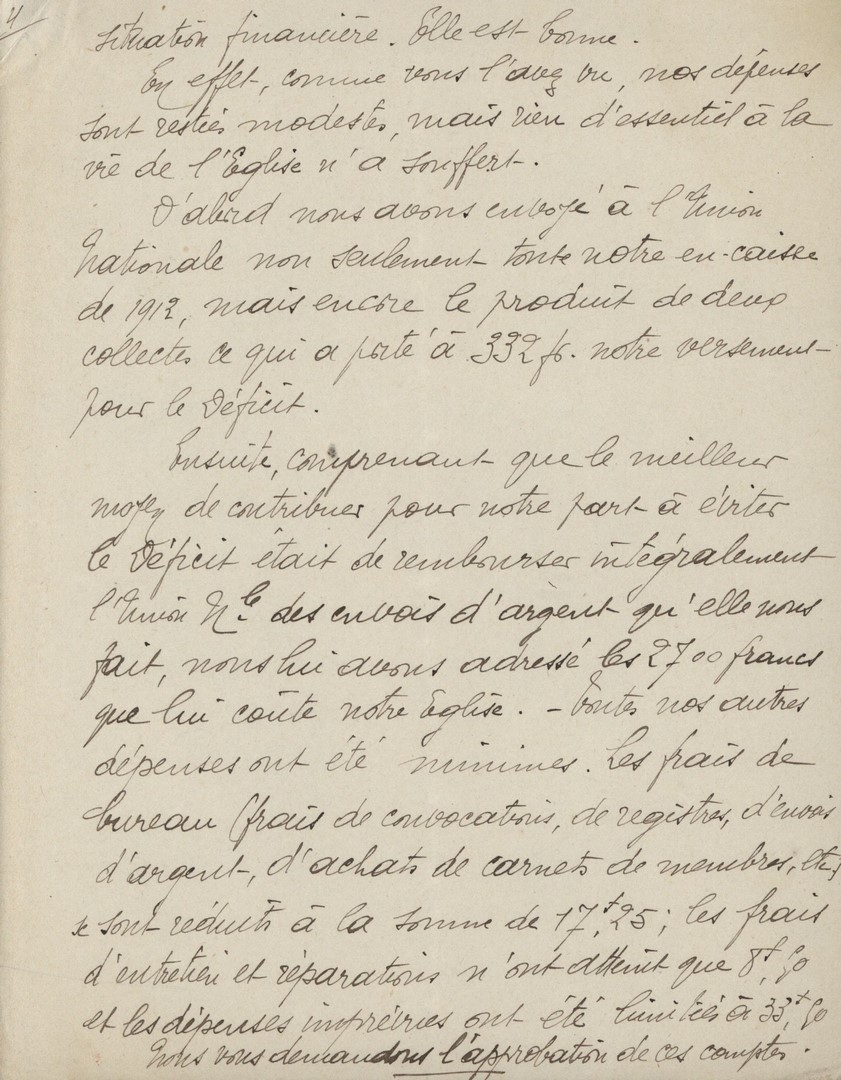 4
situation financière. Elle est bonne.
En effet, comme vous l'avez vu, nos dépenses
sont restées modestes, mais rien d'essentiel à la
vie de l'Eglise n'a souffert.
D'abord nous avons envoyé à l'Union
Nationale non seulement toute notre en-caisse
de 1912, mais encore le produit de deux
collectes ce qui a porté à 332 fr. notre versement
pour le Déficit.
Ensuite, comprenant que le meilleur
moyen de contribuer pour notre part à éviter
le Déficit était de rembourser intégralement
l'Union Nle des envois d'argent qu'elle nous
fait, nous lui avons adressé les 2700 francs
que lui coûte notre Eglise. - Toutes nos autres
dépenses ont été minimes. Les frais de
bureau (frais de convocations, de registres, d'envois
d'argent, d'achats de carnets de membres, etc.)
se sont réduits à la somme de 17f,25; les frais
d'entretien et réparations n'ont atteint que 8f,50
et les dépenses imprévues ont été limitées à 33f,50
Nous vous demandons l'approbation de ces comptes.